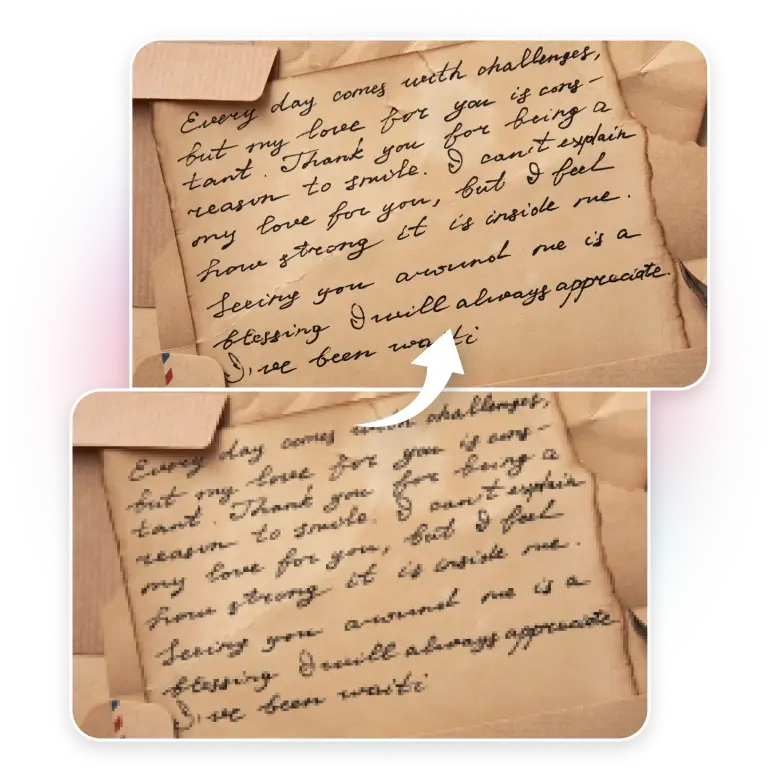 Every day comes with challenges,
but my love for you is cons-
tant. Thank you for being a
reason to smile. I can't explain
my love for you, but I feel
how strong it is inside me.
Seeing you around me is a
blessing I will always appreciate.
I've been waiti
Every day comes with challenges,
but my love for you is cons-
tant. Thank you for being a
reason to smile. I can't explain
my love for you, but I feel
how strong it is inside me.
Seeing you around me is a
blessing I will always appreciate
I've been waiti